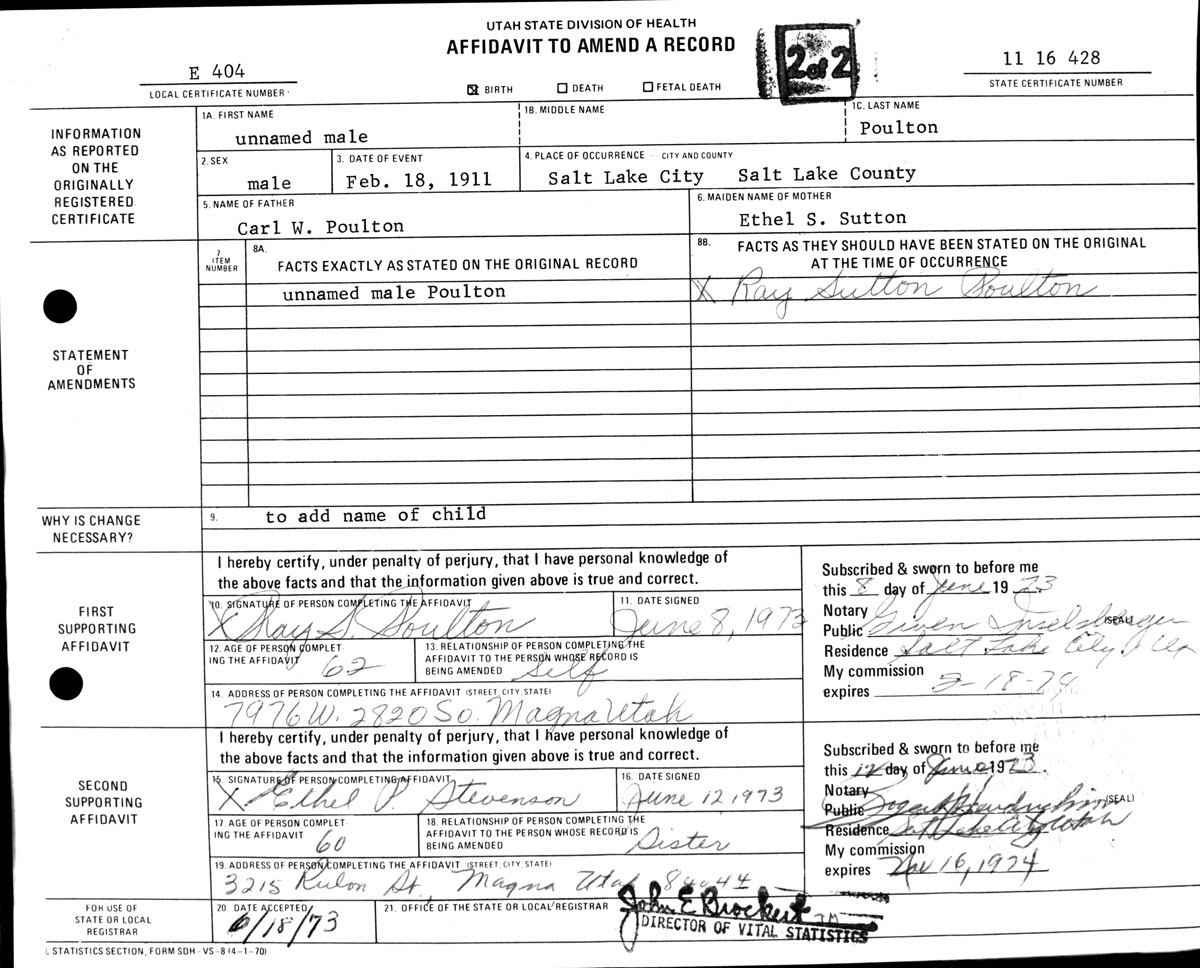 UTAH STATE DIVISION OF HEALTH
AFFIDAVIT TO AMEND A RECORD
2 of 2
E 404
LOCAL CERTIFICATE NUMBER
☒ BIRTH ☐ DEATH ☐ FETAL DEATH
11 16 428
STATE CERTIFICATE NUMBER
INFORMATION AS REPORTED ON THE ORIGINALLY REGISTERED CERTIFICATE
1A. FIRST NAME
unnamed male
1B. MIDDLE NAME
1C. LAST NAME
Poulton
2. SEX
male
3. DATE OF EVENT
Feb. 18, 1911
4. PLACE OF OCCURRENCE – CITY AND COUNTY
Salt Lake City Salt Lake County
5. NAME OF FATHER
Carl W. Poulton
6. MAIDEN NAME OF MOTHER
Ethel S. Sutton
STATEMENT OF AMENDMENTS
7 ITEM NUMBER
8A. FACTS EXACTLY AS STATED ON THE ORIGINAL RECORD
8B. FACTS AS THEY SHOULD HAVE BEEN STATED ON THE ORIGINAL AT THE TIME OF OCCURRENCE
unnamed male Poulton
X Ray Sutton Poulton
WHY IS CHANGE NECESSARY?
9. to add name of child
FIRST SUPPORTING AFFIDAVIT
I hereby certify, under penalty of perjury, that I have personal knowledge of
the above facts and that the information given above is true and correct.
10. SIGNATURE OF PERSON COMPLETING THE AFFIDAVIT
X Ray S. Poulton
11. DATE SIGNED
June 8, 1973
12. AGE OF PERSON COMPLETING THE AFFIDAVIT
62
13. RELATIONSHIP OF PERSON COMPLETING THE AFFIDAVIT TO THE PERSON WHOSE RECORD IS BEING AMENDED
Self
14. ADDRESS OF PERSON COMPLETING THE AFFIDAVIT (STREET, CITY, STATE)
7976 W. 2820 So. Magna Utah
Subscribed & sworn to before me
this 8 day of June 19 73
Notary
Public (SEAL)
Residence Salt Lake City,
My commission
expires 2-18-74
SECOND SUPPORTING AFFIDAVIT
I hereby certify, under penalty of perjury, that I have personal knowledge of
the above facts and that the information given above is true and correct.
15. SIGNATURE OF PERSON COMPLETING AFFIDAVIT
X Ethel P. Stevenson
16. DATE SIGNED
June 12, 1973
17. AGE OF PERSON COMPLETING THE AFFIDAVIT
60
18. RELATIONSHIP OF PERSON COMPLETING THE AFFIDAVIT TO THE PERSON WHOSE RECORD IS BEING AMENDED
Sister
19. ADDRESS OF PERSON COMPLETING THE AFFIDAVIT (STREET, CITY STATE)
3215 Rulon St. Magna Utah 84044
Subscribed & sworn to before me
this 12 day of June 1973.
Notary
Public (SEAL)
Residence Salt Lake City Utah
My commission
expires Nov 16, 1974
FOR USE OF STATE OR LOCAL REGISTRAR
20. DATE ACCEPTED
6/18/73
21. OFFICE OF THE STATE OR LOCAL REGISTRAR
John E Brockert
DIRECTOR OF VITAL STATISTICS
STATISTICS SECTION, FORM SDH-VS-8 (4-1-70)